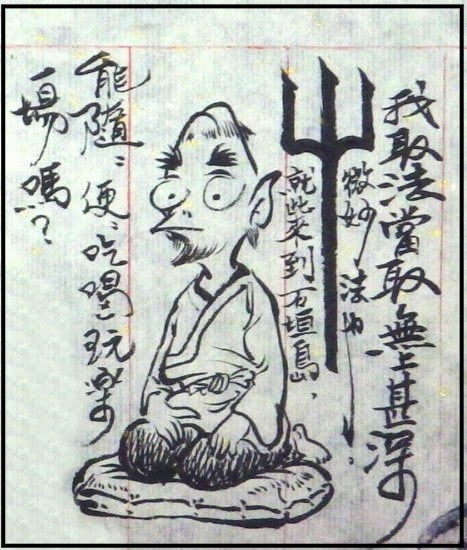 我取法當取無上甚深
微妙法也、
就此来到石垣島、
能隨〻便〻吃喝玩樂
一場嗎？